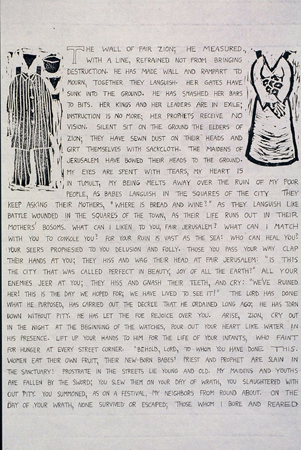 THE WALL OF FAIR ZION; HE MEASURED,
WITH A LINE, REFRAINED NOT FROM BRINGING
DESTRUCTION. HE HAS MADE WALL AND RAMPART TO
MOURN, TOGETHER THEY LANGUISH. HER GATES HAVE
SUNK INTO THE GROUND. HE HAS SMASHED HER BARS
TO BITS. HER KINGS AND HER LEADERS ARE IN EXILE;
INSTRUCTION IS NO MORE; HER PROPHETS RECEIVE NO
VISION. SILENT SIT ON THE GROUND THE ELDERS OF
ZION; THEY HAVE SEWN DUST ON THEIR HEADS AND
GIRT THEMSELVES WITH SACKCLOTH. THE MAIDENS OF
JERUSALEM HAVE BOWED THEIR HEADS TO THE GROUND.
MY EYES ARE SPENT WITH TEARS, MY HEART IS
IN TUMULT, MY BEING MELTS AWAY OVER THE RUIN OF MY POOR
PEOPLE, AS BABES LANGUISH IN THE SQUARES OF THE CITY. THEY
KEEP ASKING THEIR MOTHERS, "WHERE IS BREAD AND WINE?" AS THEY LANGUISH LIKE
BATTLE WOUNDED IN THE SQUARES OF THE TOWN, AS THEIR LIFE RUNS OUT IN THEIR
MOTHERS' BOSOMS. WHAT CAN I LIKEN TO YOU, FAIR JERUSALEM? WHAT CAN I MATCH
WITH YOU TO CONSOLE YOU? FOR YOUR RUIN IS VAST AS THE SEA: WHO CAN HEAL YOU?
YOUR SEERS PROPHESSED TO YOU DELUSION AND FOLLY. THOSE YOU PASS YOUR WAY CLAP
THEIR HANDS AT YOU; THEY HISS AND WAG THEIR HEAD AT FAIR JERUSALEM: "IS THIS
THE CITY THAT WAS CALLED PERFECT IN BEAUTY, JOY OF ALL THE EARTH?" ALL YOUR
ENEMIES JEER AT YOU; THEY HISS AND GNASH THEIR TEETH, AND CRY: "WE'VE RUINED
HER! THIS IS THE DAY WE HOPED FOR; WE HAVE LIVED TO SEE IT!" THE LORD HAS DONE
WHAT HE PURPOSED, HAS CARRIED OUT THE DECREE THAT HE ORDAINED LONG AGO; HE HAS TORN
DOWN WITHOUT PITY. HE HAS LET THE FOE REJOICE OVER YOU. ARISE, ZION, CRY OUT
IN THE NIGHT AT THE BEGINNING OF THE WATCHES, POUR OUT YOUR HEART LIKE WATER IN
HIS PRESENCE. LIFT UP YOUR HANDS TO HIM FOR THE LIFE OF YOUR INFANTS, WHO FAINT
FOR HUNGER AT EVERY STREET CORNER. "BEHOLD, LORD, TO WHOM YOU HAVE DONE THIS.
WOMEN EAT THEIR OWN FRUIT, THEIR NEW-BORN BABES! PRIEST AND PROPHET ARE SLAIN IN
THE SANCTUARY! PROSTRATE IN THE STREETS LIE YOUNG AND OLD. MY MAIDENS AND YOUTHS
ARE FALLEN BY THE SWORD; YOU SLEW THEM ON YOUR DAY OF WRATH, YOU SLAUGHTERED WITH
OUT PITY. YOU SUMMONED, AS ON A FESTIVAL, MY NEIGHBORS FROM ROUND ABOUT. ON THE
DAY OF YOUR WRATH, NONE SURVIVED OR ESCAPED; THOSE WHOM I BORE AND REARED